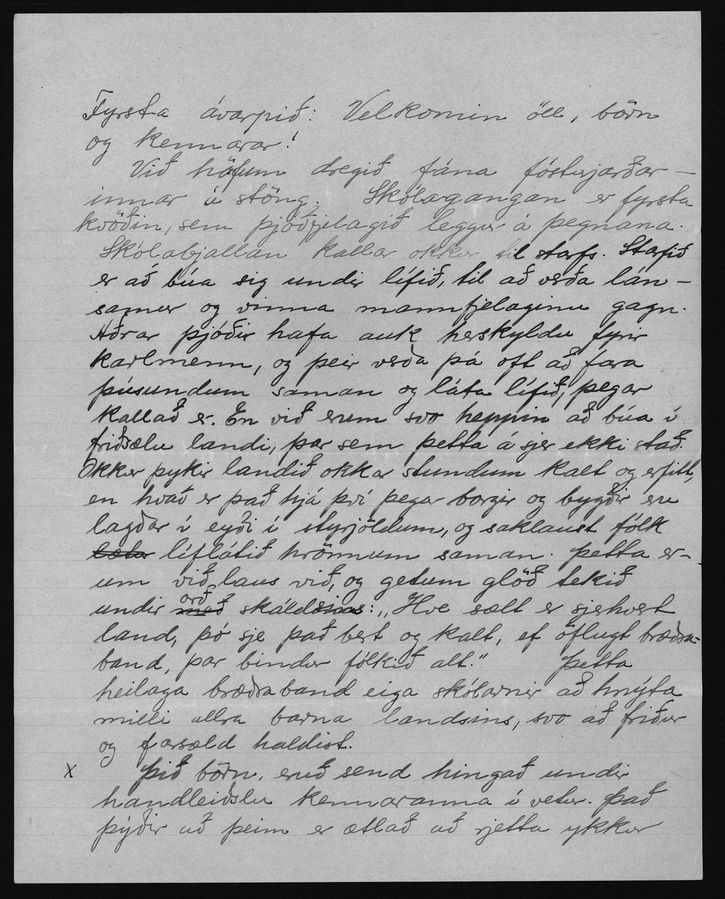 Fyrsta ávarpið: Velkomin öll, börn
og kennarar!
Við höfum dregið fána fósturjarðar-
innar á stöng. Skólagangan er fyrsta
kvöðin, sem þjóðfjelagið leggur á þegnana.
Skólabjallan kallar okkur til starfs. Starfið
er að búa sig undir lífið, til að verða lán-
samur og vinna mannfjelaginu gagn.
Aðrar þjóðir hafa auk herskyldu fyrir
karlmenn, og þeir verða þá oft að fara
þúsundum saman og láta lífið, þegar
kallað er. En við erum svo heppin að búa í
friðsælu landi, þar sem þetta á sjer ekki stað.
Okkur þykir landið okkar stundum kalt og erfitt,
en hvað er það hjá því þegar borgir og bygðir eru
lagðar í eyði í styrjöldum, og saklaust fólk
lætur líflátið hrönnum saman. Þetta er-
um við laus við, og getum glöð tekið
undir með orð skáldsins: „Hve sælt er sjerhvert
land, þó sje það bert og kalt, ef öflugt bræðra-
band, þar bindur fólkið alt.“ Þetta
heilaga bræðraband eiga skólarnir að hnýta
milli allra barna landsins, svo að friður
og farsæld haldist.
x Þið börn, eruð send hingað undir
handleiðslu kennaranna í vetur. Það
þýðir að þeim er ætlað að rjetta ykkur